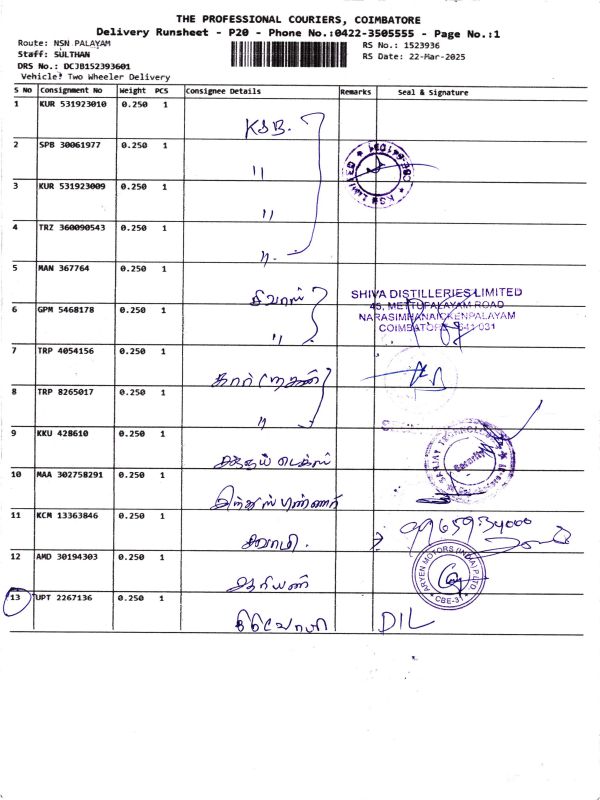 THE PROFESSIONAL COURIERS, COIMBATORE
Delivery Runsheet - P20 - Phone No.:0422-3505555 - Page No.:1
Route: NSN PALAYAM
RS No.: 1523936
Staff: SULTHAN
RS Date: 22-Mar-2025
DRS No.: DCJB152393601
Vehicle: Two Wheeler Delivery
S No Consignment No Weight PCS Consignee Details Remarks Seal & Signature
1 KUR 531923010 0.250 1 KSB.
2 SPB 30061977 0.250 1 "
3 KUR 531923009 0.250 1 "
4 TRZ 360090543 0.250 1 "
5 MAN 367764 0.250 1
SHIVA DISTILLERIES LIMITED
45, METTUPALAYAM ROAD
NARASIMHANAICKENPALAYAM
COIMBATORE 641 031
6 GPM 5468178 0.250 1 "
7 TRP 4054156 0.250 1
8 TRP 8265017 0.250 1 "
9 KKU 428610 0.250 1
10 MAA 302758291 0.250 1
11 KCM 13363846 0.250 1
12 AMD 30194303 0.250 1
ARYEN MOTORS (INDIA) P LTD
CBE-31
13 UPT 2267136 0.250 1 DIL